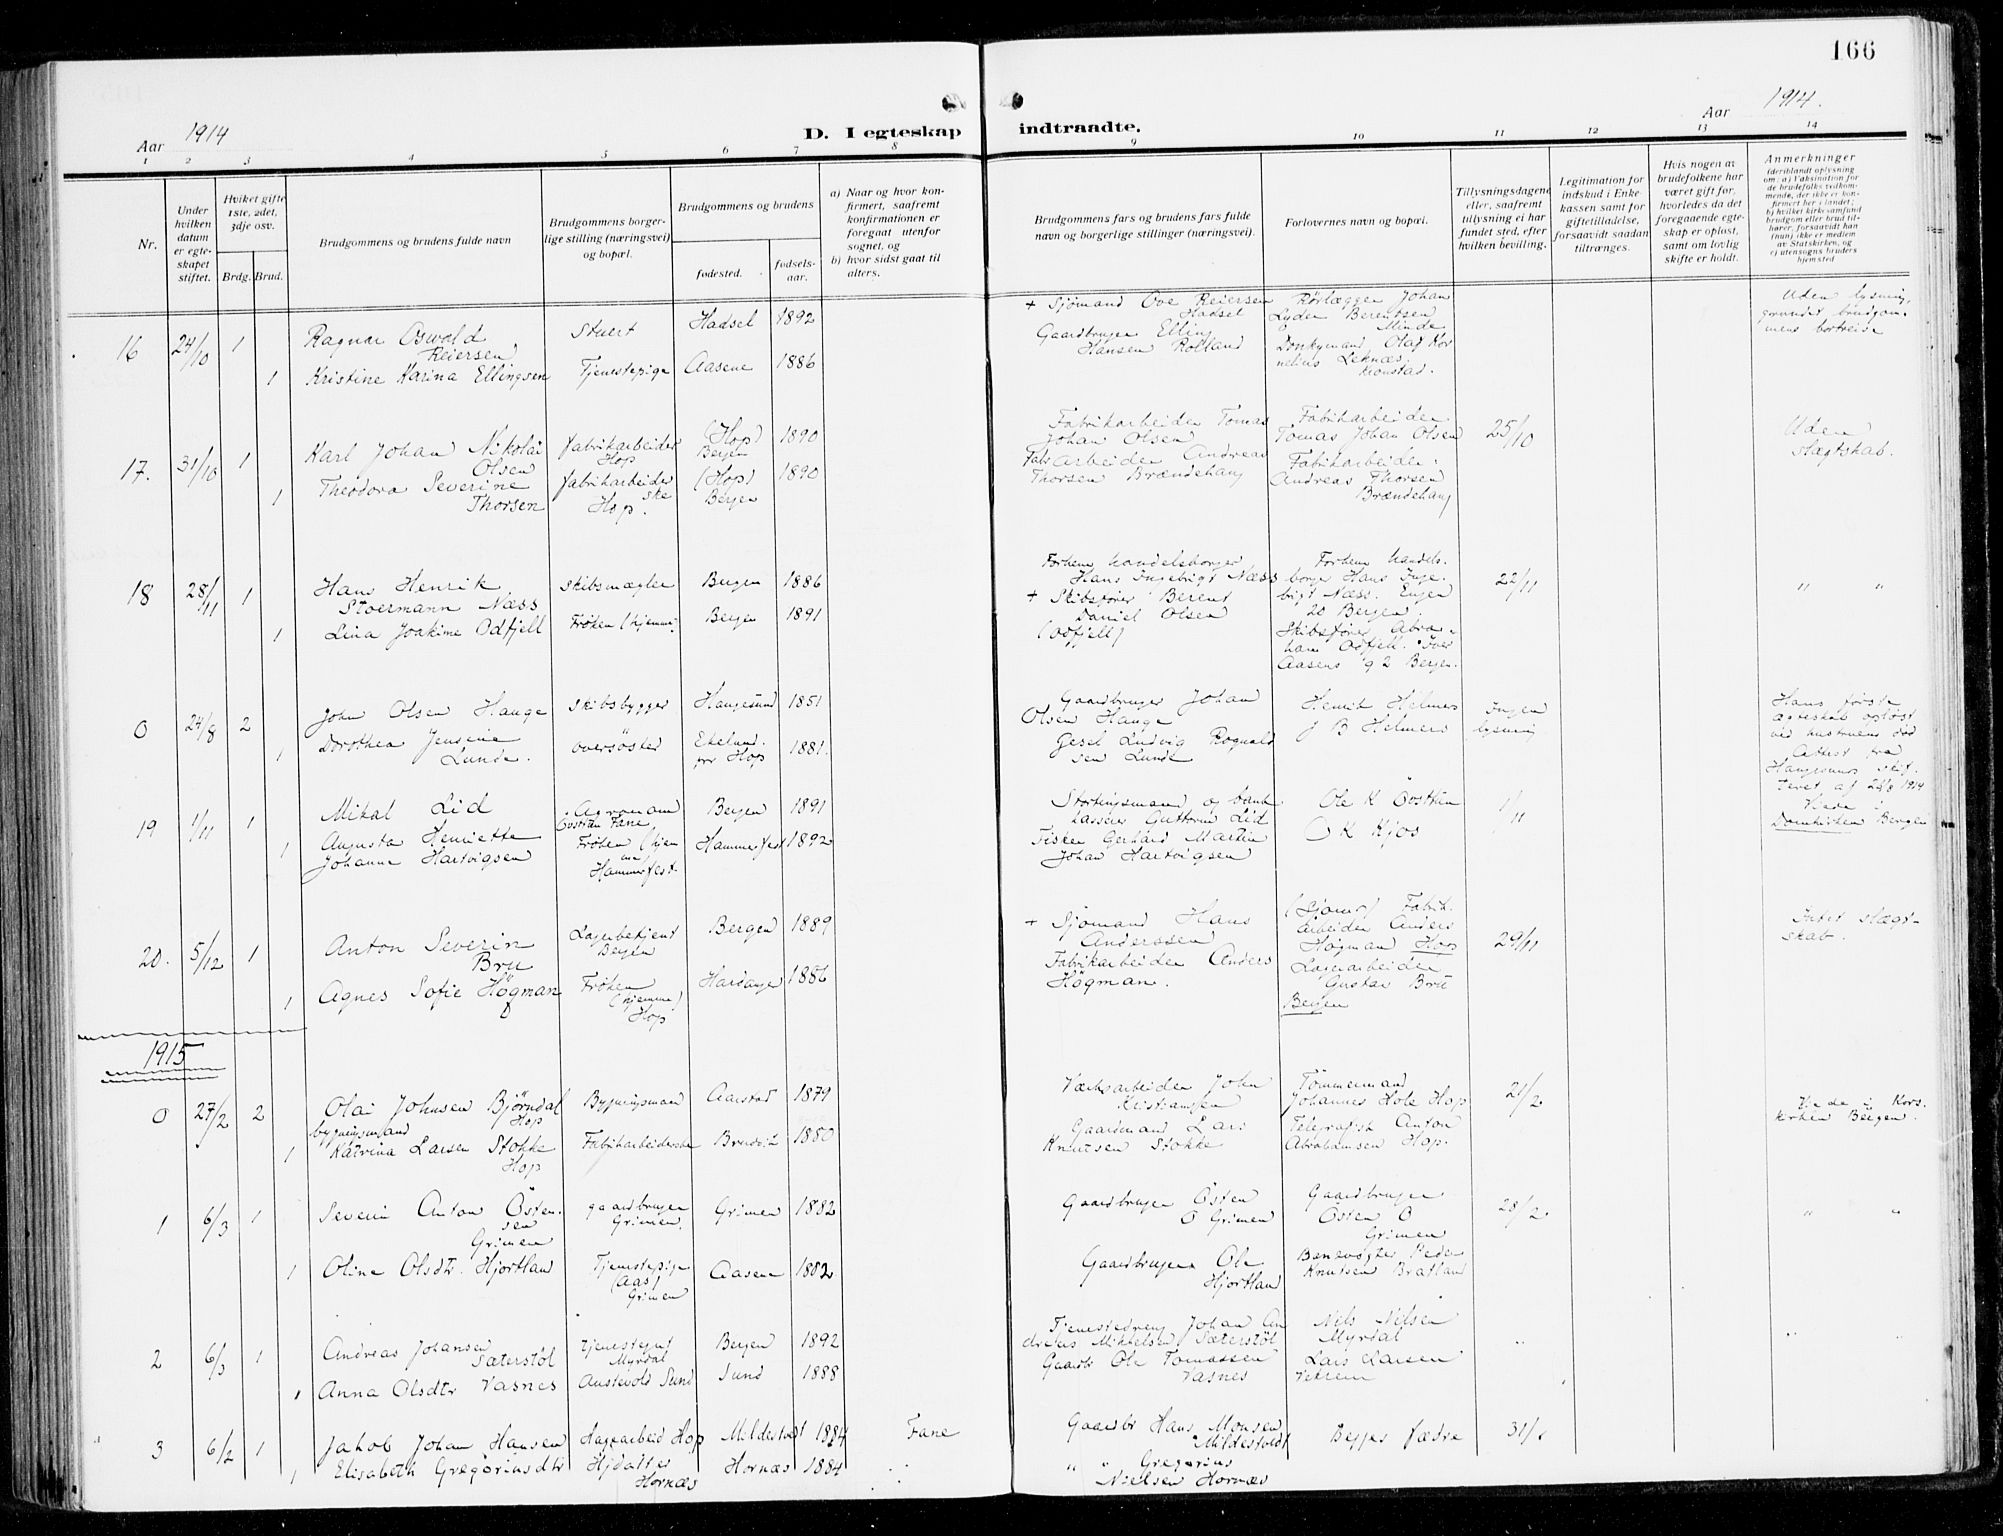 166
Aar 1914
D. I egteskap indtraadte.
Aar 1914.
1 2 3 4 5 6 7 8 9 10 11 12 13 14
Nr.
Under hvilken datum er egteskapet stiftet.
Hvilket gifte 1ste, 2det, 3dje osv.
Brdg. Brud.
Brudgommens og brudens fulde navn
Brudgommens borgerlige stilling (næringsvei) og bopæl.
Brudgommens og brudens
fødested.
fødselsaar.
a) Naar og hvor konfirmert, saafremt konfirmationen er foregaat utenfor sognet, og
b) hvor sidst gaat til alters.
Brudgommens fars og brudens fars fulde navn og borgerlige stillinger (næringsvei).
Forlovernes navn og bopæl.
Tillysningsdagene eller, saafremt tillysning ei har fundet sted, efter hvilken bevilling.
Legitimation for indskud i Enkekassen samt for giftetilladelse, forsaavidt saadan tiltrænges.
Hvis nogen av brudefolkene har været gift før, hvorledes da det foregaaende egteskap er opløst, samt om lovlig skifte er holdt.
Anmerkninger
16 24/10 1
Ragnar Oswald
Reiersen
Stuert
Hadsel 1892
+ Sjømand Ove Reiersen
Hadsel
Rørlægger Johan
Lyder Berentsen
Minde
Uden lysning,
grundet brudgommens bortreise
1 Kristine Karina Ellingsen
Tjenestepige
Aasene 1886
Gaardbruger Elling
Hansen Rolland
Donkymand Olaf Kornelius Leknæs.
Kronstad.
17. 31/10 1
Karl Johan Nikolai
Olsen
fabrikarbeider
Hop
(Hop)
Bergen 1890
Fabrikarbeider Tomas
Johan Olsen
Fabrikarbeider
Tomas Johan Olsen
25/10
Uden
slægtskab.
1 Theodora Severine
Thorsen
fabrikarbeiderske
Hop.
(Hop)
Bergen 1890
Fabrarbeider Andreas
Thorsen Brændehaug
Fabrikarbeider
Andreas Thorsen
Brændehaug
18 28/11 1
Hans Henrik
Stoermann Næss
Skibsmægler
Bergen 1886
Forhenv handelsborger
Hans Ingebrigt Næss
Forhenv handelsborger Hans Ingebrigt Næss. Engen
20 Bergen.
22/11
" "
1 Lina Joakime Odfjell
Frøken (hjemme)
Bergen 1891
+ Skibsfører Berent
Daniel Olsen
(Odfjell)
Skibsfører Abraham Odfjell. Øvre
Aasens g 2 Bergen.
0 24/8 2
John Olsen Hauge
Skibsbygger
Haugesund 1851
Gaardbruger Johan
Olsen Hauge
Henrik Helmers
J B Helmers
Ingen
lysning
Hans første
ægteskab opløst
ved hustruens død
Attest fra
Haugesunds skifteret af 1914
1 Dorothea Jensine
Lunde.
oversøster
Ekelund
pr Hop 1881.
Ludvig Rognaldsen Lunde
19 1/11 1
Mikal Lid
Agronom
Fane
Bergen 1891
Stortingsmand og bankkasserer Guttorm Lid
Ole K
O K Kjos
1/11
Viede i
Domkirken Bergen
1 Augusta Henriette
Johanne Hartvigsen
Frøken (hjemme)
Hammerfest
Hammerfest 1892
Fisker Gerhard Martin
Johan Hartvigsen
20. 5/12 1
Anton Severin
Bru
Lagerbetjent
Bergen
Bergen 1889
+ Sjømand Hans
Anderssen
Fabrikarbeider Anders
Høgman Hop
29/11
Intet slægtskab.
1 Agnes Sofie Högman
Frøken
(hjemme)
Hop
Hardanger 1886
Fabrikarbeider Anders
Högman.
Lagerarbeider
Gustav Bru
Bergen
1915
0 27/2 2
Olai Johnsen Bjørndal
Hop
bygningsmand
Bygningsmand
Aarstad 1879
Værksarbeider John
Kristiansen
Tømmermand
Johannes Hole Hop
21/2
Viede i Korskirken Bergen.
1 Katrina Larsen Stokke
Hop
Fabrikarbeiderske
Bruvik 1880
Gaardmand Lars
Knutsen Stokke
Telegrafist Anton
Abrahamsen Hop.
1 6/3 1
Severin Anton Östensen
Grimen
gaardbruger
Grimen.
Grimen 1882
Gaardbruger Östen
O Grimen
Gaardbruger
Östen O
Grimen
28/2
" "
1 Oline Olsdtr. Hjortland
Tjenestepige
(Aas)
Grimen
Aasene 1882
Gaardbruger Ole
Hjortland
Banevogter Peder
Knutsen Bratland
2 6/3 1
Andreas Johansen
Sæterstöl
tjenestegut
Myrdal
Bergen 1892
Tjenestedreng Johan Andreas Mikkelsen Sæterstöl
Nils Nilsen
Myrdal
" " "
1 Anna Olsdtr Vasnes
Austevold Sund
Sund 1888
Gaardbr Ole Tomassen
Vasnes
Lars Larsen
3 6/2 1
Jakob Johan Hansen
Hagearbeid Hop
Mildestvedt 1884
Fane
Gaardbr Hans Monsen
Mildestvedt
Begges fædre
31/1
1 Elisabeth Gregoriusdtr
Hornæs
Hornæs 1884
" " Gregorius
Nielsen Hornæs